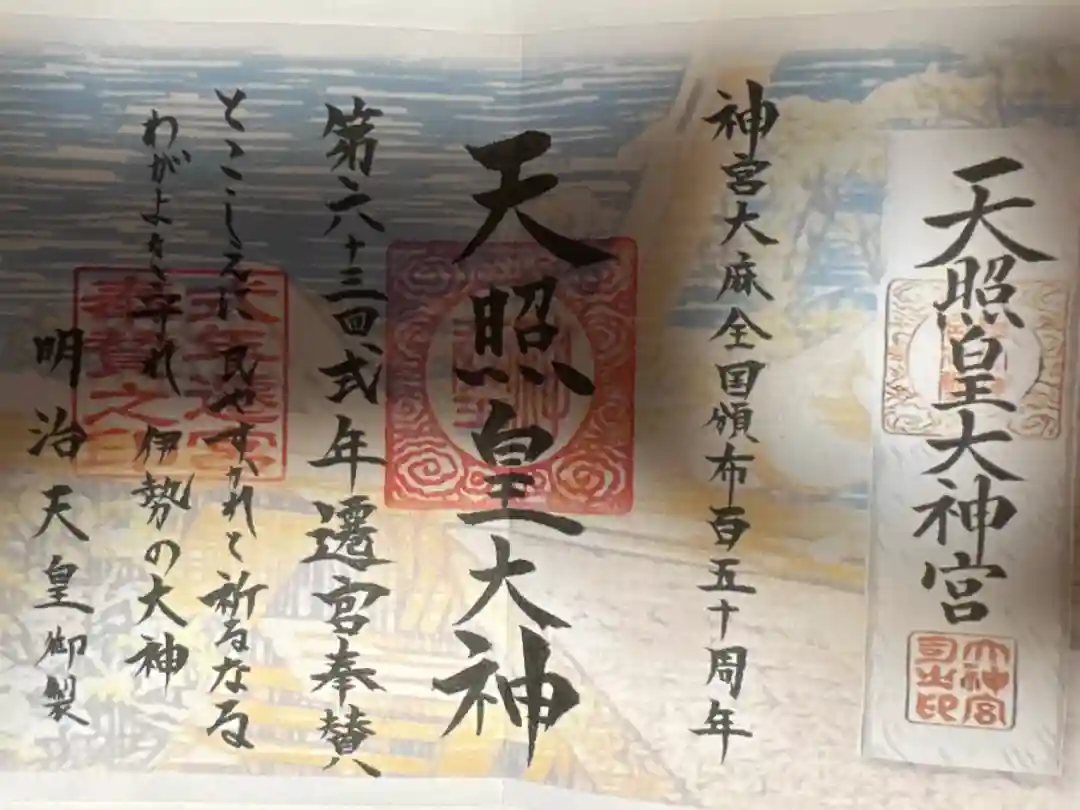 天照皇大神宮
大神宮司之印
神宮大麻全国頒布百五十周年
天照皇大神
第六十三回式年遷宮奉賛
式年遷宮奉賛之印
とこしえに民やすかれと祈るなる
わがよをまもれ伊勢の大神
明治天皇御製